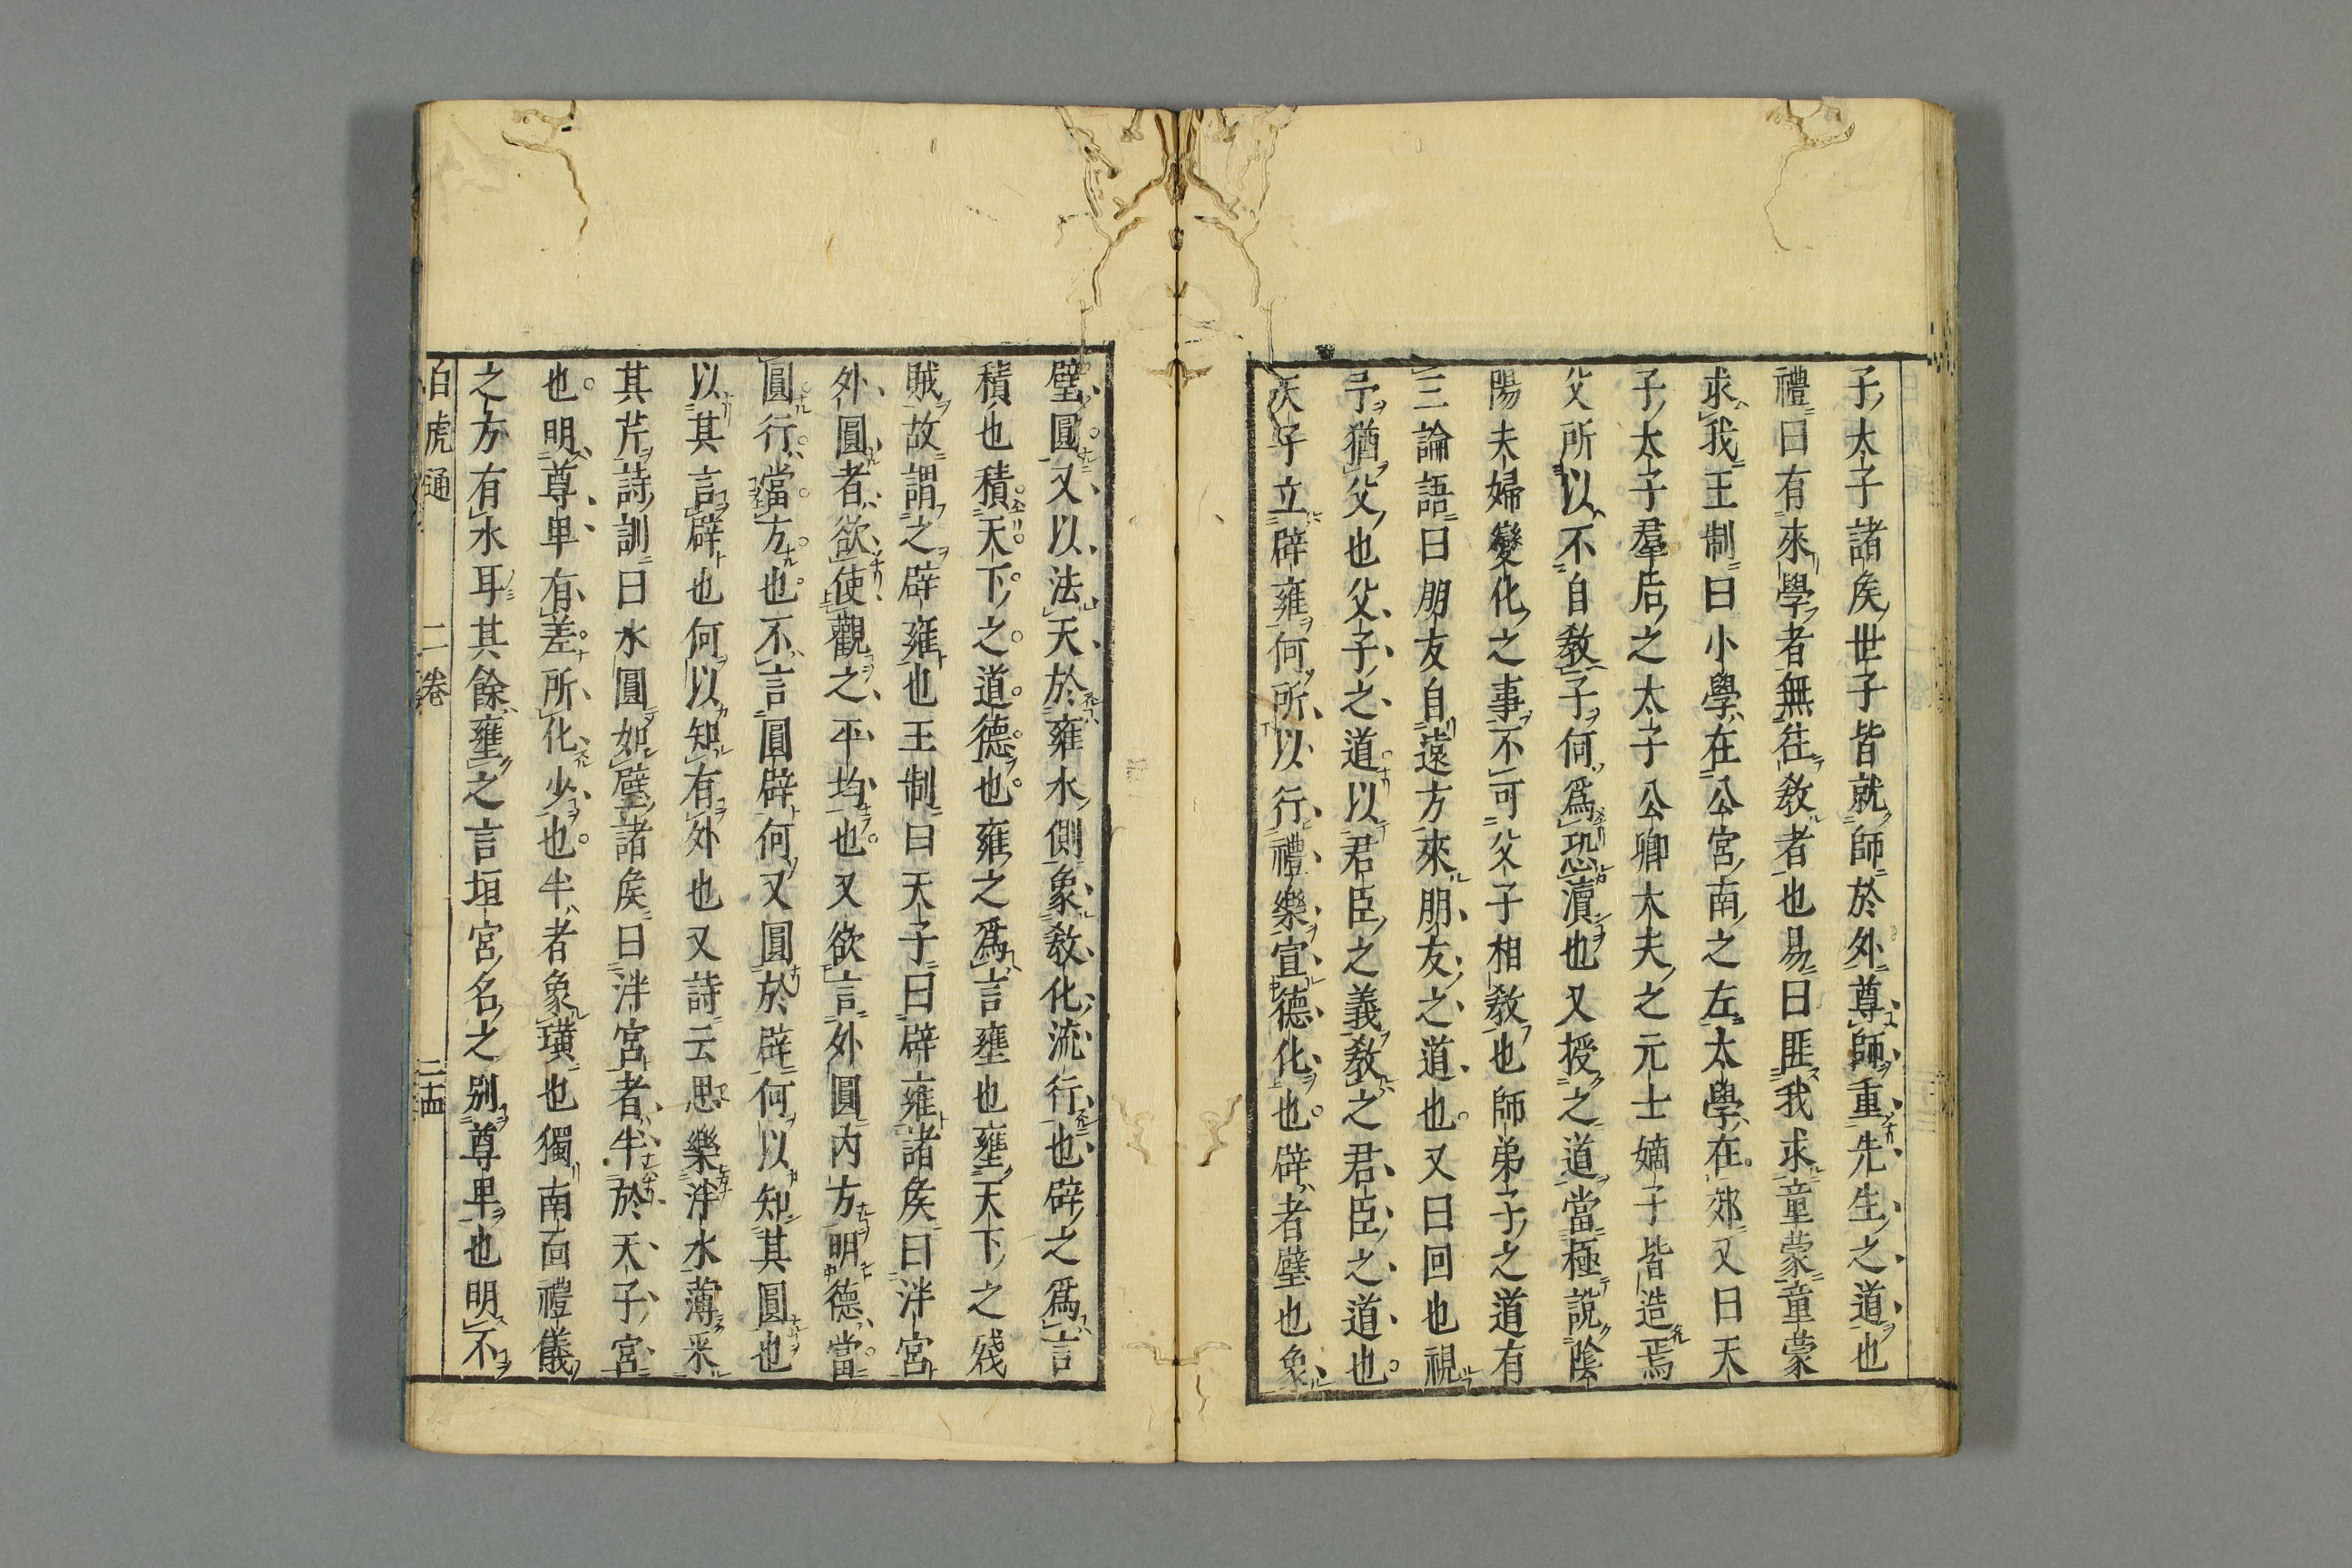 子太子諸矦世子皆就師於外尊師重先生之道也
禮曰有來學者無徃敎者也易曰匪我求童蒙童蒙
求我王制曰小學在公宮南之左太學在郊又曰天
子太子羣后之太子公卿大夫之元士嫡子皆造焉
父所以不自敎子何爲恐瀆也又授之道當極說陰
陽夫婦變化之事不可父子相敎也師弟子之道有
三論語曰朋友自遠方來朋友之道也又曰回也視
予猶父也父子之道以君臣之義敎之君臣之道也
天子立辟雍何所以行禮樂宣德化也辟者璧也象
璧圓又以法天於雍水側象敎化流行也辟之爲言
積也積天下之道德也雍之爲言壅也壅天下之殘
賊故謂之辟雍也王制曰天子曰辟雍諸矦曰泮宮
外圓者欲使觀之平均也又欲言外圓内方明德當
圓行當方也不言圓辟何又圓於辟何以知其圓也
以其言辟也何以知有外也又詩云思樂泮水薄采
其芹詩訓曰水圓如璧諸矦曰泮宮者半於天子宮
也明尊卑有差所化少也半者象璜也獨南面禮儀
之方有水耳其餘壅之言垣宮名之别尊卑也明不
白虎通 二卷 二十四